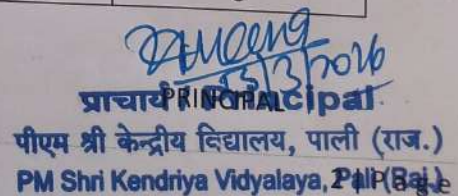 प्राचार्य PRINCIPAL Principal
पीएम श्री केन्द्रीय विद्यालय, पाली (राज.)
PM Shri Kendriya Vidyalaya, Pali (Raj.)